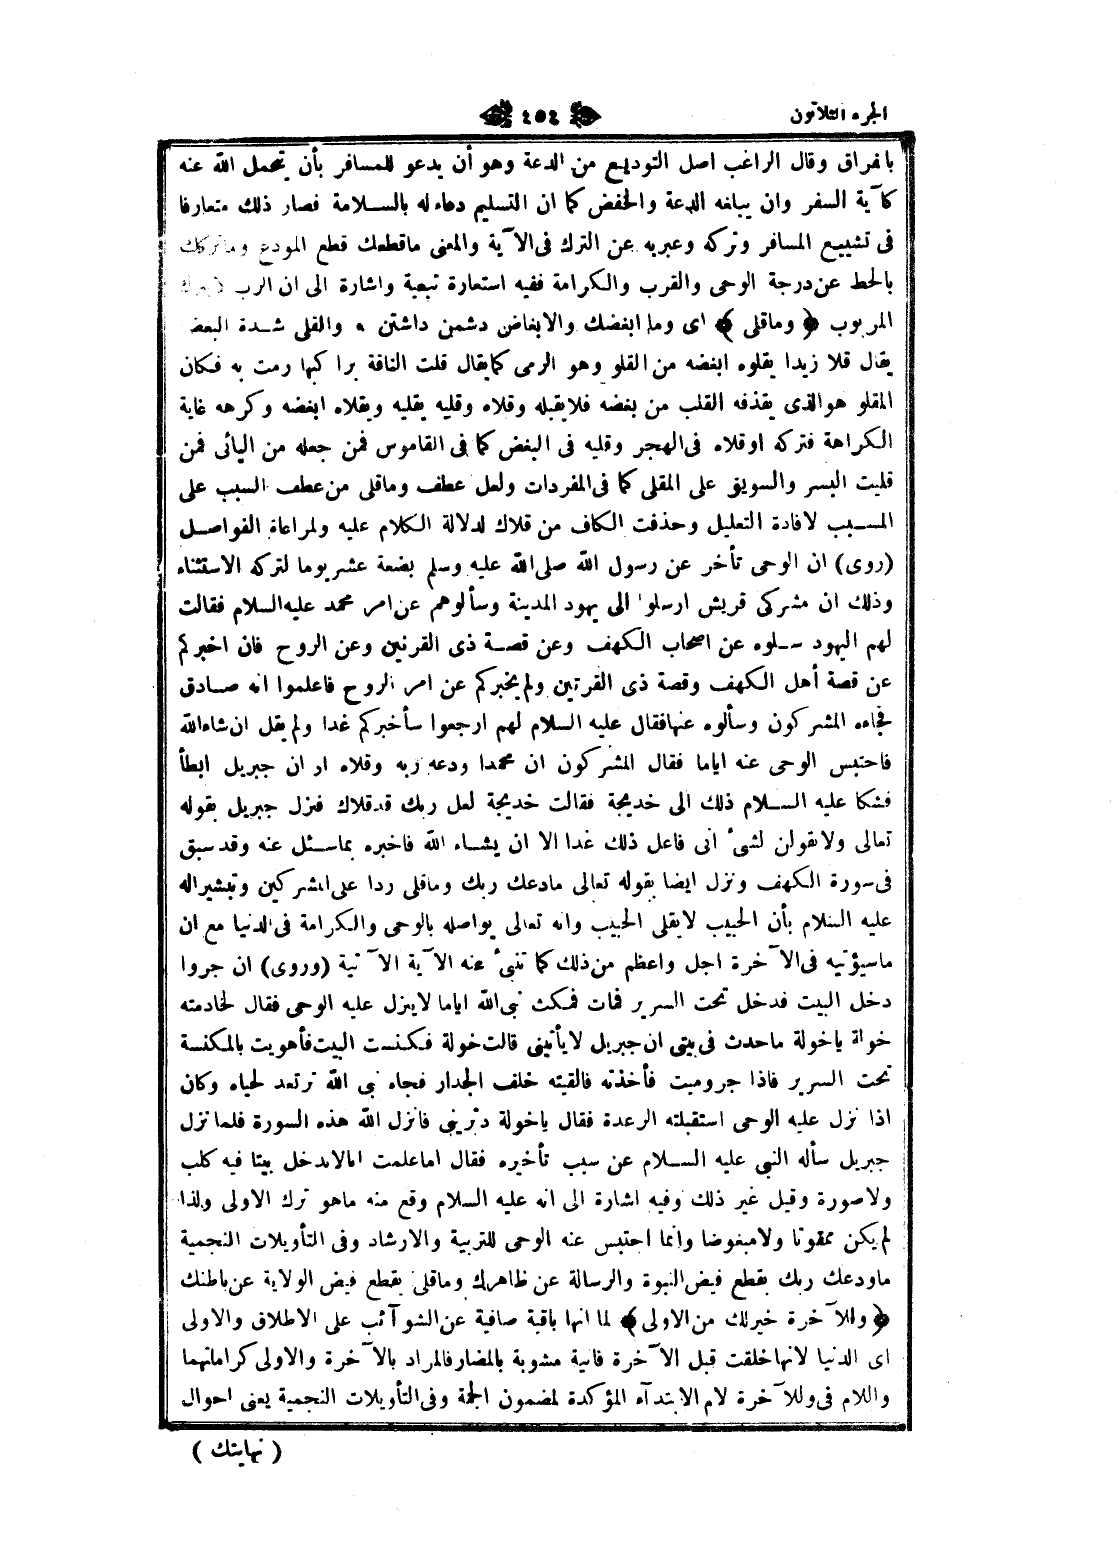 الجزء الثلاثون
٤٥٤
بالفراق وقال الراغب اصل التوديع من الدعة وهو أن يدعو للمسافر بأن يتحمل الله عنه
كآبة السفر وان يبلغه الدعة والخفض كما ان التسليم دعاء له بالسلامة فصار ذلك متعارفا
فى تشييع المسافر وتركه وعبر به عن الترك فى الآية والمعنى ماقطعك قطع المودع وماتركك
بالحط عن درجة الوحى والقرب والكرامة ففيه استعارة تبعية واشارة الى ان الرب لايترك
المربوب ﴿ وماقلى ﴾ اى وما ابغضك والابغاض دشمن داشتن ٠ والقلى شدة البغض
يقال قلا زيدا يقلوه ابغضه من القلو وهو الرمى كمايقال قلت الناقة براكبها رمت به فكان
المقلو هوالذى يقذفه القلب من بغضه فلايقبله وقلاه وقليه يقليه ويقلاه ابغضه وكرهه غاية
الكراهة فتركه اوقلاه فى الهجر وقليه فى البغض كما فى القاموس فمن جعله من اليائى فمن
قليت البسر والسويق على المقلى كما فى المفردات ولعل عطف وماقلى من عطف السبب على
المسبب لافادة التعليل وحذفت الكاف من قلاك لدلالة الكلام عليه ولمراعاة الفواصل
(روى) ان الوحى تأخر عن رسول الله صلى الله عليه وسلم بضعة عشر يوما لتركه الاستثناء
وذلك ان مشركى قريش ارسلوا الى يهود المدينة وسألوهم عن امر محمد عليه السلام فقالت
لهم اليهود سلوه عن اصحاب الكهف وعن قصة ذى القرنين وعن الروح فان اخبركم
عن قصة أهل الكهف وقصة ذى القرنين ولم يخبركم عن امر الروح فاعلموا انه صادق
فجاءه المشركون وسألوه عنها فقال عليه السلام لهم ارجعوا سأخبركم غدا ولم يقل ان شاءالله
فاحتبس الوحى عنه اياما فقال المشركون ان محمدا ودعه ربه وقلاه او ان جبريل ابطأ
فشكا عليه السلام ذلك الى خديجة فقالت خديجة لعل ربك قدقلاك فنزل جبريل بقوله
تعالى ولاتقولن لشىء انى فاعل ذلك غدا الا ان يشاء الله فاخبره بماسئل عنه وقد سبق
فى سورة الكهف ونزل ايضا بقوله تعالى مادعك ربك وماقلى ردا على المشركين وتبشيرا له
عليه السلام بأن الحبيب لايقلى الحبيب وانه تعالى يواصله بالوحى والكرامة فى الدنيا مع ان
ماسيؤتيه فى الآخرة اجل واعظم من ذلك كما تنبئ عنه الآية الآتية (وروى) ان جروا
دخل البيت فدخل تحت السرير فمات فمكث نبى الله اياما لاينزل عليه الوحى فقال لخادمته
خولة ياخولة ماحدث فى بيتى ان جبريل لايأتينى قالت خولة فكنست البيت فأهويت بالمكنسة
تحت السرير فاذا جروميت فأخذته فالقيته خلف الجدار فجاء نبى الله ترتعد لحياه وكان
اذا نزل عليه الوحى استقبلته الرعدة فقال ياخولة دثرينى فانزل الله هذه السورة فلما نزل
جبريل سأله النبى عليه السلام عن سبب تأخيره فقال اماعلمت انالاندخل بيتا فيه كلب
ولاصورة وقيل غير ذلك وفيه اشارة الى انه عليه السلام وقع منه ماهو ترك الاولى ولذا
لم يكن ممقوتا ولامبغوضا وانما احتبس عنه الوحى للتربية والارشاد وفى التأويلات النجمية
ماودعك ربك بقطع فيض النبوة والرسالة عن ظاهرك وماقلى بقطع فيض الولاية عن باطنك
﴿ وللآخرة خيرلك من الاولى ﴾ لما انها باقية صافية عن الشوآئب على الاطلاق والاولى
اى الدنيا لانها خلقت قبل الآخرة فانية مشوبة بالمضار فالمراد بالآخرة والاولى كراماتهما
واللام فى وللآخرة لام الابتدآء المؤكدة لمضمون الجملة وفى التأويلات النجمية يعنى احوال
( نهايتك )